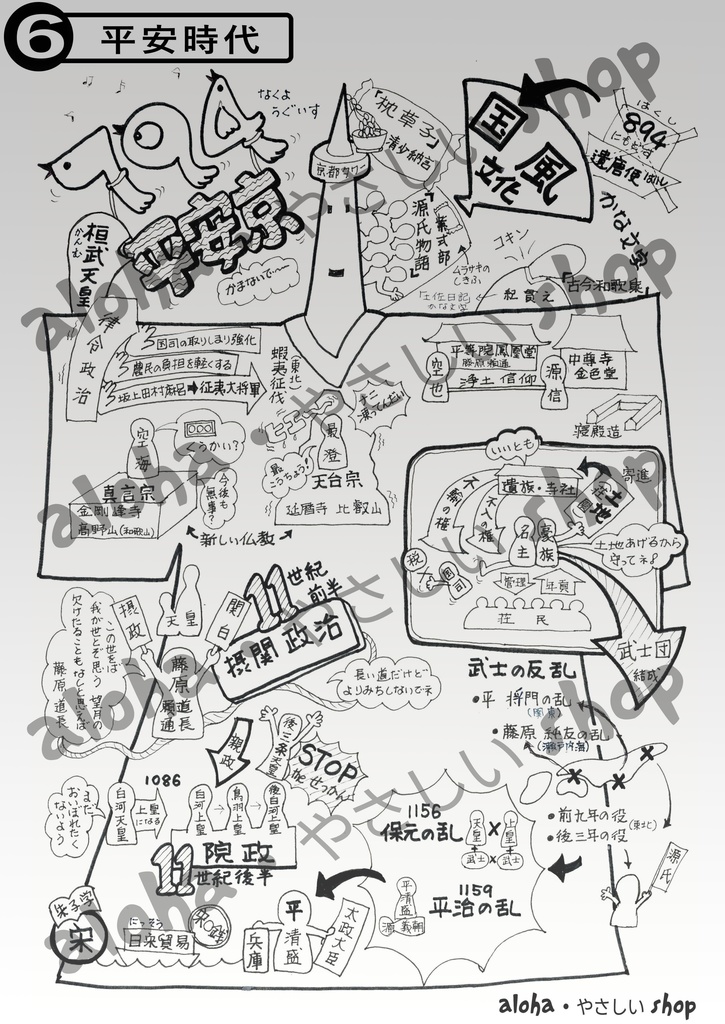 6 平安時代
794
なくよ
うぐいす
平安京
かまないで〜〜
桓武天皇
かんむ
京都タワー
「枕草子」
清少納言
「源氏物語」
紫式部
ムラサキの
しきぶ
国風
文化
はくし
894
にもどす
遣唐使はいし
かな文字
コキン
「土佐日記」
かな文字
紀貫之
「古今和歌集」
律令政治
国司の取りしまり強化
農民の負担を軽くする
坂上田村麻呂➡征夷大将軍
蝦夷征伐
(東北)
平等院鳳凰堂
藤原頼通
浄土信仰
空也
源信
中尊寺
金色堂
寝殿造
空海
くうかい?
今後も
無事?
真言宗
金剛峰寺
高野山(和歌山)
最澄
最
こうちょう!
天台宗
延暦寺 比叡山
新しい仏教
いいとも
遺族・寺社
寄進
不輸の権
不入の権
土地
名主
豪族
税
国司
管理
年貢
荘民
土地あげるから
守ってネ♪
武士団
結成
11世紀
前半
摂関政治
天皇
摂政
関白
藤原
道長
頼通
この世をば
我が世とぞ思う 望月の
欠けたることもなしと思えば
藤原道長
長い道だけど
よりみちしないでネ
武士の反乱
・平 将門の乱
(関東)
・藤原 純友の乱
(瀬戸内海)
・前九年の役
・後三年の役
(東北)
源氏
親政
後三条天皇
STOP
the せっかん
1086
まだ
おいぼれたく
ないよう
白河天皇
上皇
になる
白河上皇
鳥羽上皇
後白河上皇
院政
11世紀後半
1156
保元の乱
天皇×上皇
武士×武士
1159
平治の乱
平清盛
源義朝
朱子学
宋
にっそう
日宋貿易
宋銭
兵庫
平清盛
太政大臣
aloha・やさしい shop
aloha・やさしい shop
aloha・やさしい shop
aloha・やさしい shop
aloha・やさしい shop
aloha・やさしい shop